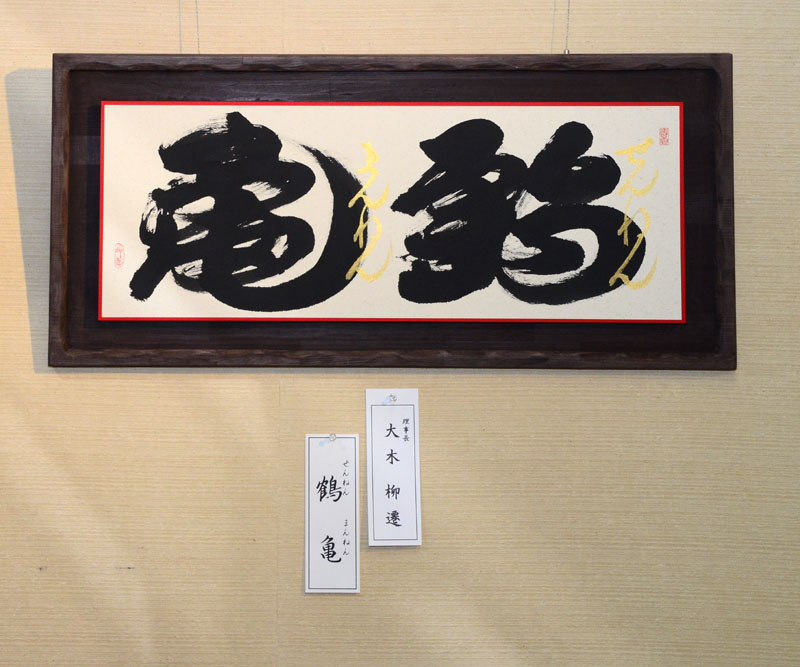 鶴亀
せんねん
まんねん
理事長
大木 柳遷
鶴 亀
せんねん まんねん